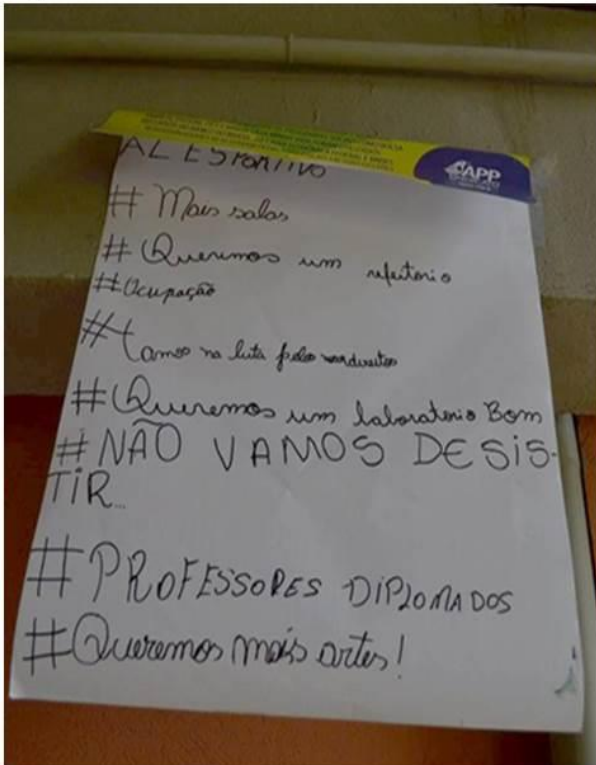 APP
AL ESPORTIVO
# Mais salas
# Queremos um refeitorio
#Ocupação
#tamos na luta pelos
#Queremos um laboratorio Bom
#NÃO VAMOS DESIS-
TIR...
#PROFESSORES DIPLOMADOS
#Queremos mais artes!